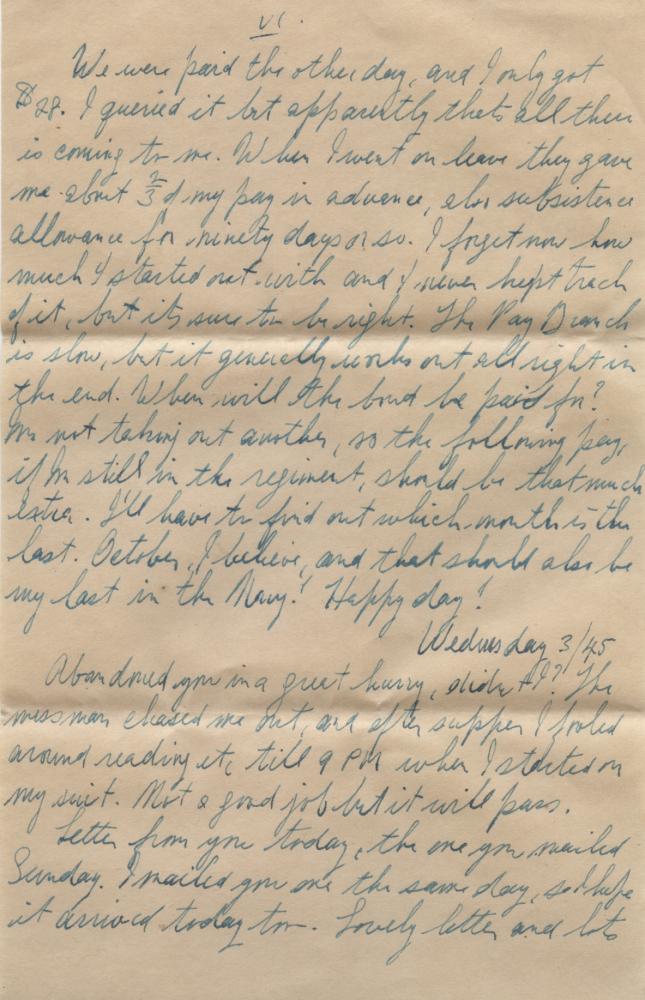 VI.
We were paid the other day, and I only got
$28. I queried it but apparently thats all there
is coming to me. When I went on leave they gave
me about 2/3 of my pay in advance, also subsistence
allowance for ninety days or so. I forget now how
much I started out with and I never kept track
of it, but its sure to be right. The Pay Branch
is slow, but it generally works out all right in
the end. When will the bond be paid for?
Im not taking out another, so the following pay,
if Im still in the regiment, should be that much
extra. I'll have to find out which month is the
last. October, I believe, and that should also be
my last in the Navy! Happy day!
Wednesday 3/45
Abandoned you in a great hurry, didn't I? The
messman chased me out, and after supper I fooled
around reading etc till 9 PM when I started on
my suit. Not a good job but it will pass.
Letter from you today, the one you mailed
Sunday. I mailed you one the same day, so I hope
it arrived today too. Lovely letter and lots